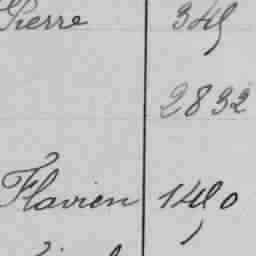 Pierre 345
2832
Flavien 1480